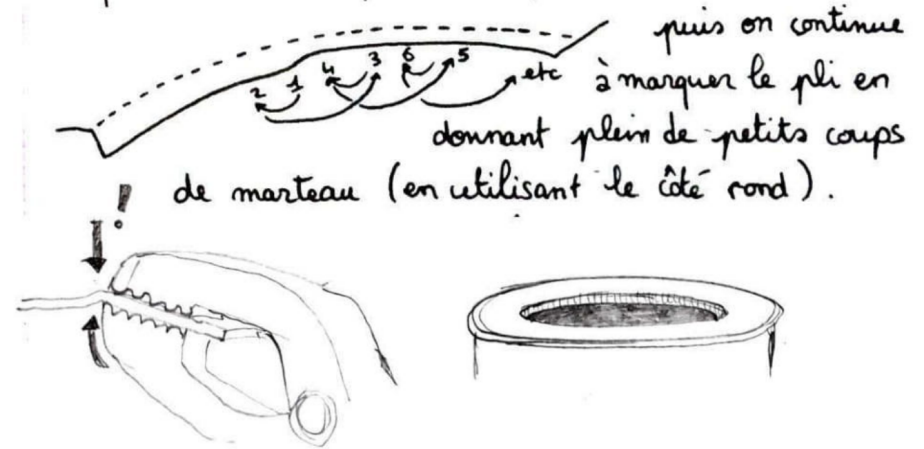 puis on continue
2 1 4 3 6 5 etc
à marquer le pli en
donnant plein de petits coups
de marteau (en utilisant le côté rond).
!